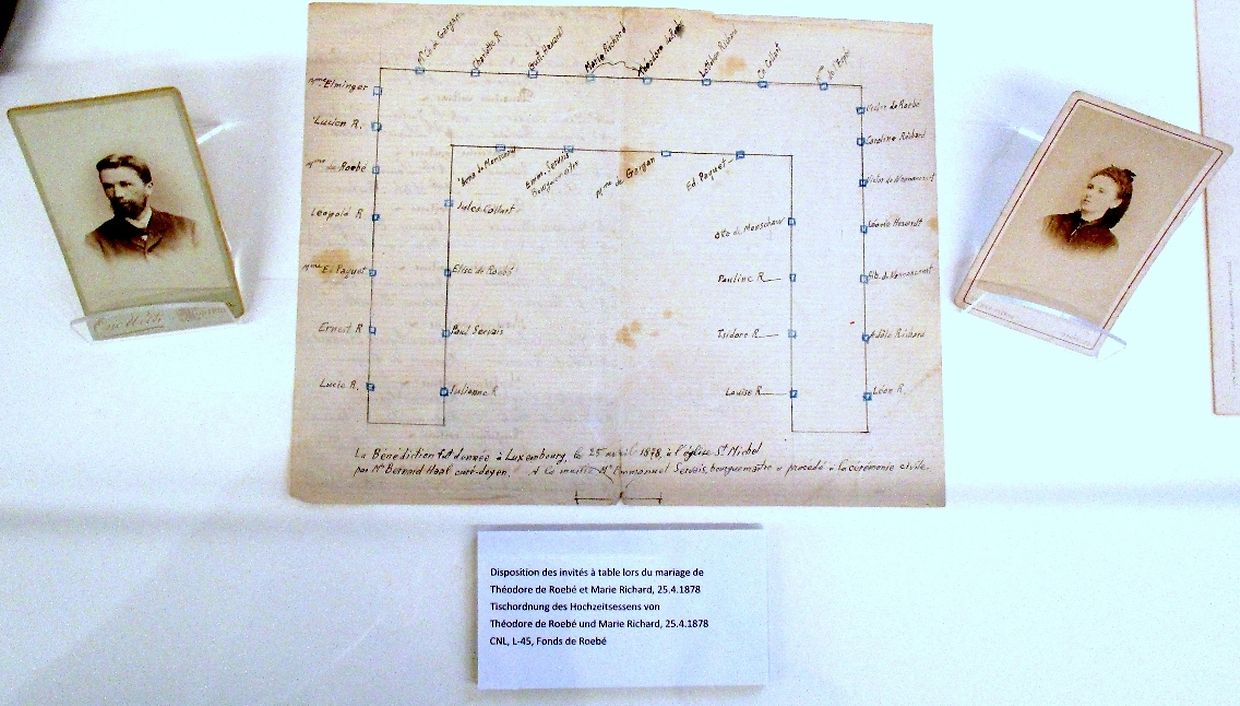 Mr Ch de Gargan
Charlotte R
Marie Richard
Théodore de Roebé
Ch. Collart
Mme de l'Espée
Mme Elminger
Lucien R.
Mme de Roebé
Léopold R
Mme Ed Paquet
Ernest R
Lucie R.
Emm. Servais
Bourgmestre
Mme de Gargan
Ed Paquet
Jules Collart
Elise de Roebé
Paul Servais
Julianne R
Pauline R
Isidore R
Louise R
Victor de Roebé
Caroline Richard
Adèle Richard
Léon R.
La Bénédiction fut donnée à Luxembourg, le 25 avril 1878, à l'église St Michel
par Mr Bernard Haal curé-doyen. A la Mr Emmanuel Servais, bourguemaître a procédé à la cérémonie civile.
Disposition des invités à table lors du mariage de
Théodore de Roebé et Marie Richard, 25.4.1878
Tischordnung des Hochzeitsessens von
Théodore de Roebé und Marie Richard, 25.4.1878
CNL, L-45, Fonds de Roebé